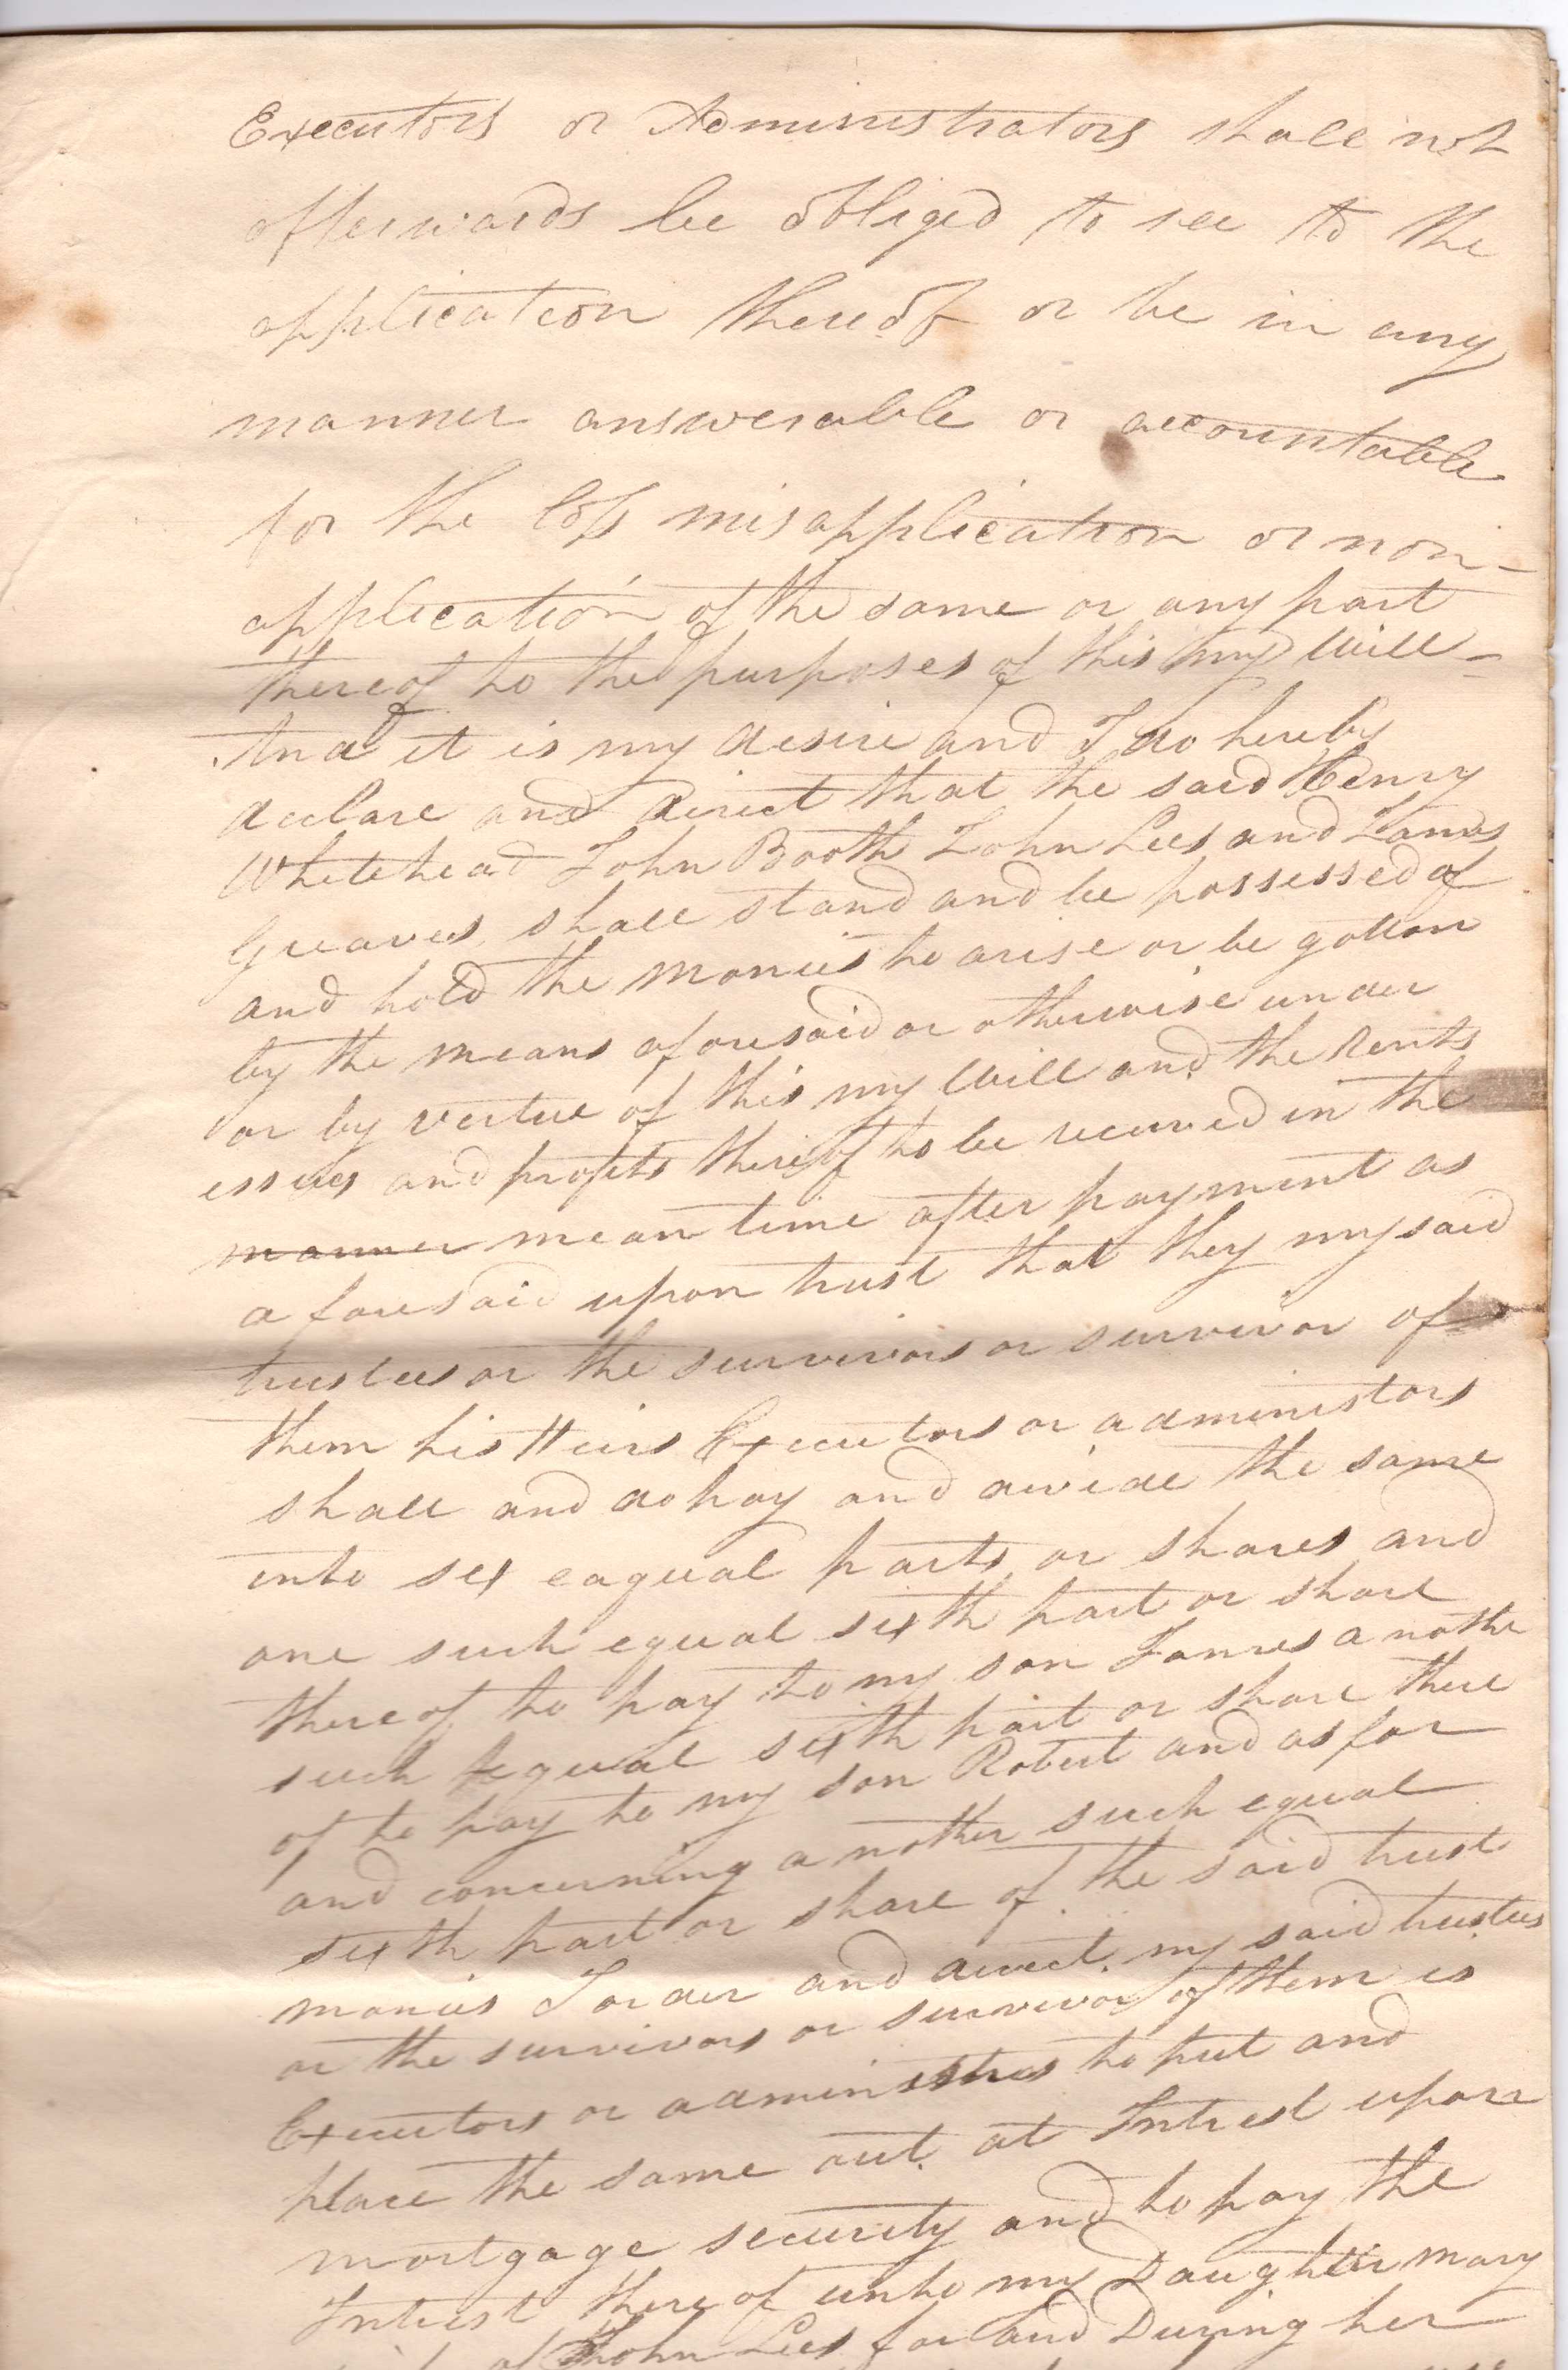 Executors or Administrators shall not
afterwards be obliged to see to the
application thereof or be in any
manner answerable or accountable
for the loss misapplication or non-
application of the same or any part
thereof to the purposes of this my Will -
And it is my desire and I do hereby
declare and direct that the said Henry
Whitehead John Booth John Lees and James
Greaves shall stand and be possessed of
and hold the monies to arise or be gotton
by the means aforesaid or otherwise under
or by vertue of this my Will and the Rents
issues and profits thereof to be received in the
manner mean time after payment as
a foresaid upon trust that they my said
trustees or the survivors or survivor of
them his Heirs Executors or administors
shall and do pay and divide the same
into six eaqual parts or shares and
one such equal sixth part or share
there of to pay to my son James a nothe
such equal sixth part or share there
of to pay to my son Robert and as for
and concerning a nother such equal
sixth part or share of the said trust
monies I order and direct my said trustees
or the survivors or survivor of them is
Executors or administros to put and
place the same out at Intrest upon
mortgage security and to pay the
Intrest there of unto my Daughter mary
John Lees for and During her